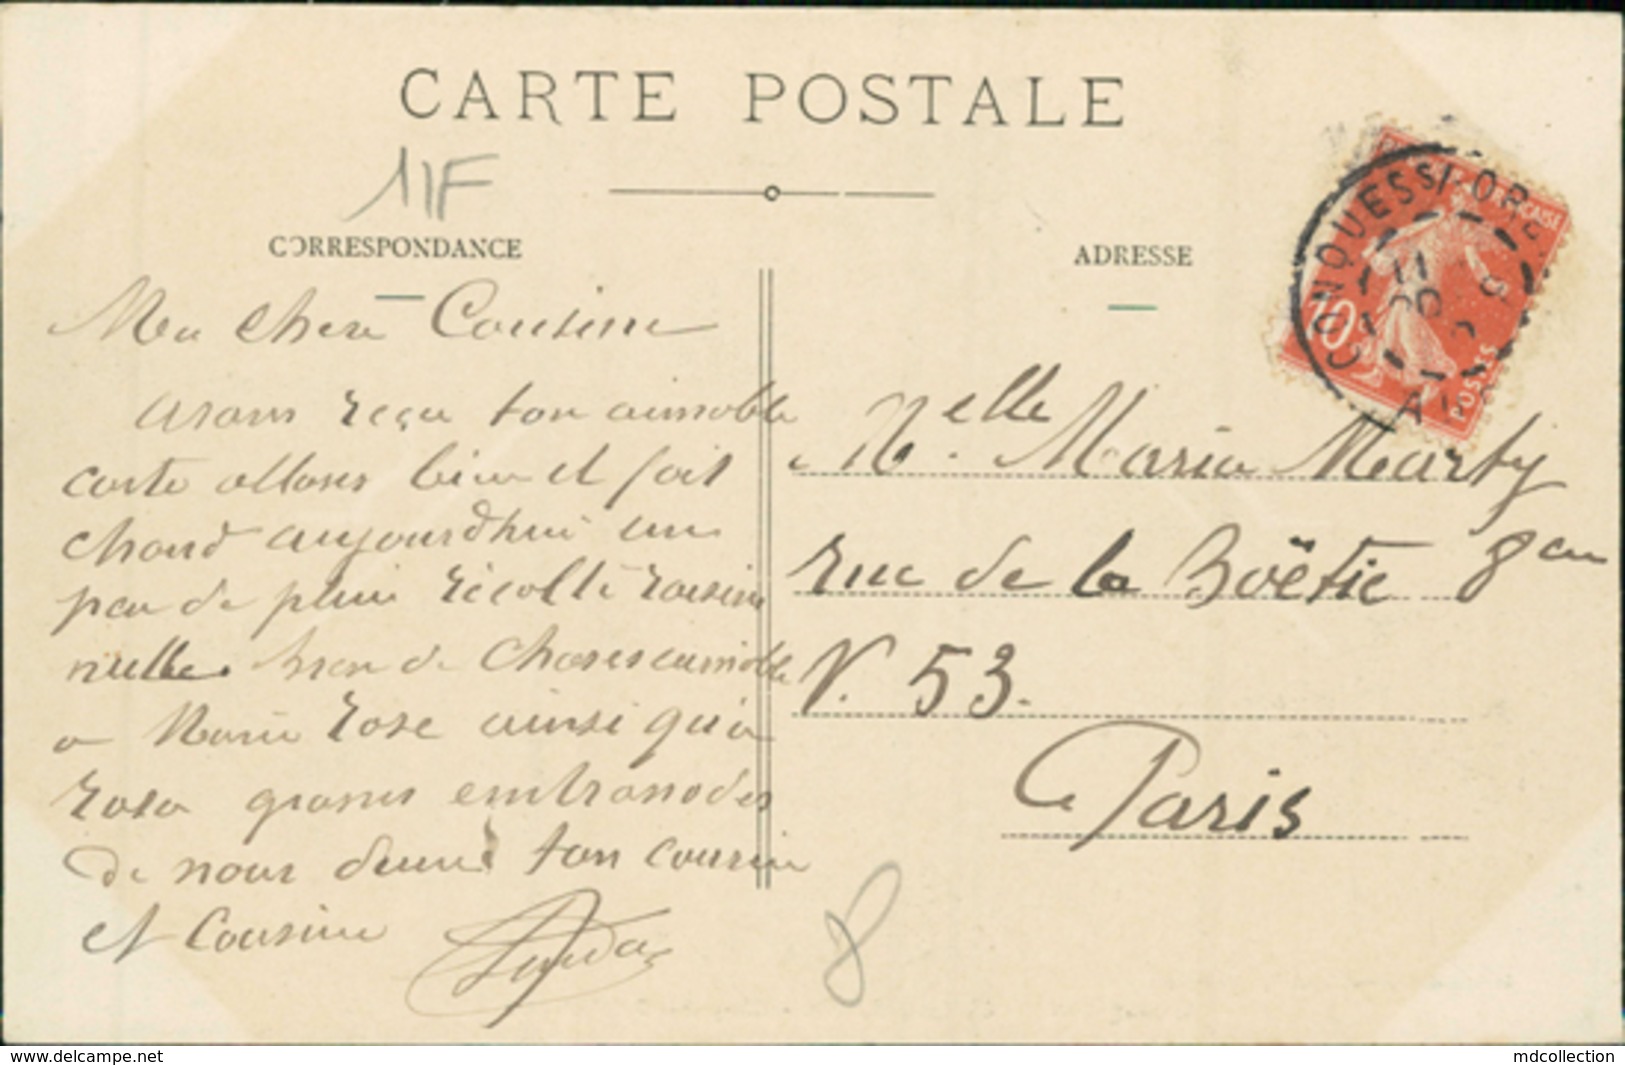 CARTE POSTALE
11F
CORRESPONDANCE
Ma chere Cousine
avons reçu ton aimable
carte allons bien il fait
chaud aujourdhui un
peu de pluie récolte raisin
nulle. bien de choses aimable
a Marie rose ainsi qu'a
rosa grosses embrassades
de nous deux ton cousin
et Cousine
ADRESSE
Melle Maria Marty
rue de la Boëtie
N. 53.
Paris
8
CONQUES SUR OR
10
POSTES
www.delcampe.net
mdcollection